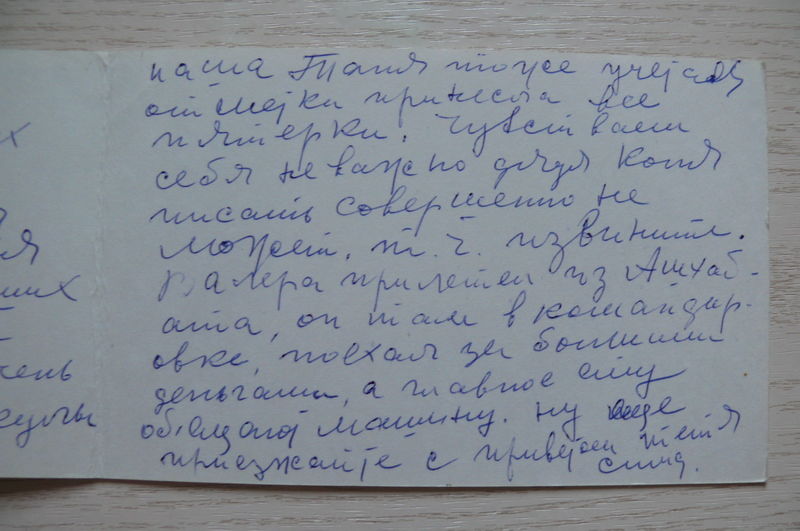 х
я
ших
чень
наша Таня тоже учеja
отметки принесла все
пятерки. Чувствваем
себя неважно дядя Коля
писать совершенно не
может, т.ч. извините.
Валера прилетел из Ашхаб-
ата, он там в командир-
овке, поехал за большими
деньгами, а главное ему
обещали машину. ну еще
приезжайте с приветом тетя
Сима.